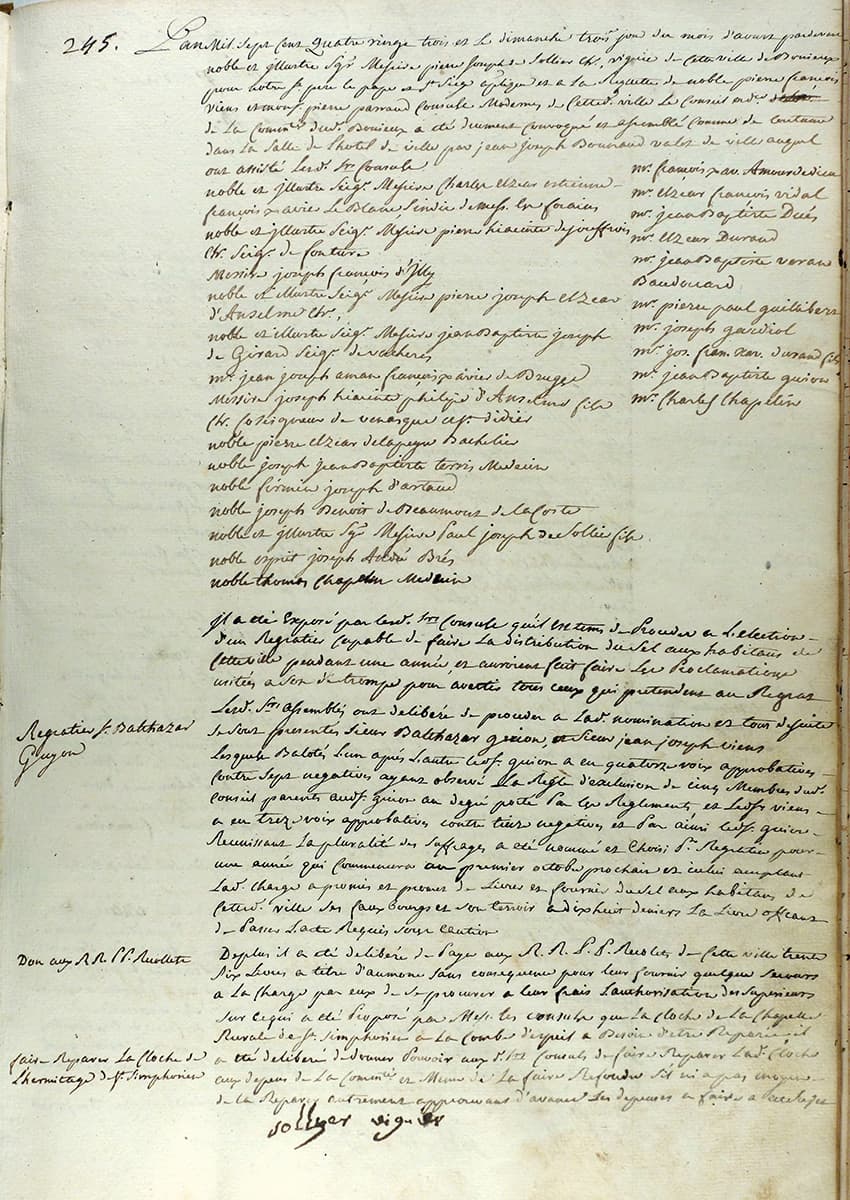 245. L'an Mil Sept Cent Quatre vingt trois et le dimanche trois.e jour du mois d'aoust pardevant
noble et jllustre Sgr Messire pierre joseph de Sollier Chr. viguier de Cette ville de Bonieux
pour notre St pere le pape et St Siege aptique et a la Requette de noble pierre françois
viens et mons.r pierre parraud Consuls Modernes de Cetted. ville Le Conseil ord.re
de La Comm.té dud. Bonieux a été duement Convoqué et assemblé Comme de Coutume
dans La Salle de Lhotel de ville par jean joseph Bonnaud valet de ville auquel
ont assisté Lesd. Srs Consuls
noble et jllustre Seig.r Messire Charles Elzear estienne
françois xavier Le Blanc Sindic de Mess. Les forains
noble et jllustre Seig.r Messire pierre hiacinte de jouffrois
Chr. Seig.r de Couture
Messire joseph françois d'jlly
noble et illustre Seig.r Messire pierre joseph Elzear
d'Anselme Chr.
noble et illustre Seig.r Messire jean Baptiste joseph
de Girard Seig.r de vacheres
mr. jean joseph aman françois xavier de Brugge
Messire joseph hiacinte philipe d'Anselme fils
Chr. Coseigneur de venasque et St. didier
noble pierre Elzear delapeyre Bachelier
noble joseph jean Baptiste terris Medecin
noble firmin joseph d'artaud
noble joseph Benoit de Beaumont de la Coste
noble et jllustre Sgr Messire Paul joseph de Sollier fils
noble esprit joseph André Brés
noble thomas Chapelin Medecin
mr. françois xav. Amourdedieu
mr. Elzear françois vidal
mr. jean Baptiste Dués
mr. Elzear Durand
mr. jean Baptiste veran
Baudouard
mr. pierre paul guilibert
mr. joseph gardiol
mr. jos. fran. xav. durand fils
mr. jean Baptiste guion
mr. Charles Chapelin
jl a été Exposé par lesd. Srs Consuls qu'il est tems de Proceder a L'election
d'un Regratier Capable de faire La distribution du Sel aux habitans de
Cette ville pendant une année et auroient fait faire Les Proclamations
usitées a Son de trompe pour avertir tous ceux qui pretendent au Regrat
Lesd. Srs assemblés ont deliberé de proceder a Lad. nomination et tout de suite
Se Sont presentés Sieur Balthazar guion, et Sieur jean joseph viens
Lesquels Balotés L'un après L'autre led. Sr guion a eu quatorze voix approbatives
Contre Sept negatives ayant observé La Regle d'exclusion de Cinq Membres dud.
Conseil parents aud. Sr guion au degré porté Par Les Reglements et Led. Sr viens
a eu treze voix approbatives contre treze negatives et Par ainsi led. Sr guion
Reunissant La pluralité des Suffrages a été nommé et Choisi Pr. Regratier pour
une année qui Commencera au premier octobre prochain et icelui acceptant
Lad. Charge a promis et promet de Livrer et fournir du Sel aux habitans de
Cetted. ville Ses fauxbourgs et son terroir a dix huit deniers La Livre offrant
de Passer L'acte Requis Sous Caution
Regratier Sr. Balthazar
Guyon
Deplus il a été deliberé de Payer aux R. R. P. P. Recolets de Cette ville trente
Six Livres a titre d'aumone sans consequence pour leur fournir quelque Secours
a La Charge par eux de se procurer a leur frais L'authorisation des Superieurs
Don aux R.R. PP. Recollets
Sur Ce qui a été Proposé par Mes. les Consuls que La Cloche de La Chapelle
Rurale de St. Simphorien a La Combe a Besoin d'etre Reparée il
a été deliberé de donner Pouvoir aux d. Srs Consuls de faire Reparer Lad. Cloche
aux depens de La Comm.té et Meme de La faire Refondre S'il n'i a pas moyen
de la Reparer autrement approuvant d'avance Les depenses a faire a
faire Reparer La Cloche de
L'hermitage de St. Simphorien
Sollyer viguier